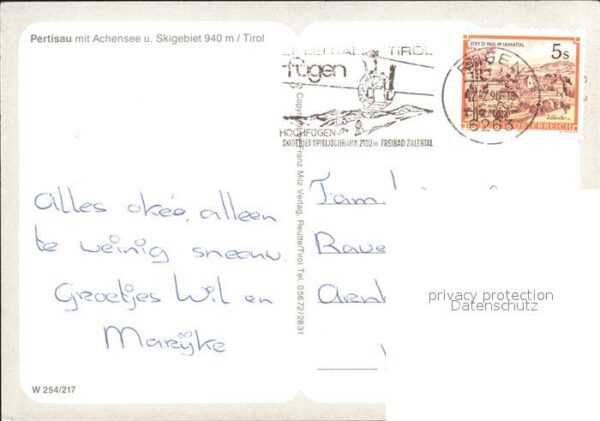 Pertisau mit Achensee u. Skigebiet 940 m / Tirol
ZILLERTAL TIROL
fügen
HOCHFÜGEN
SKIGEBIET SPIELJOCHBAHN 2100m FREIBAD ZILLERTAL
FÜGEN
6263
STIFT ST. PAUL IM LAVANTTAL
5s
ÖSTERREICH
Alles okée, alleen
te weinig sneeuw.
Groetjes Wil en
Marijke
© Copyright by Franz Milz Verlag, Reutte/Tirol Tel. 05672/2831
Fam.
Rave
Arnh
privacy protection
Datenschutz
W 254/217